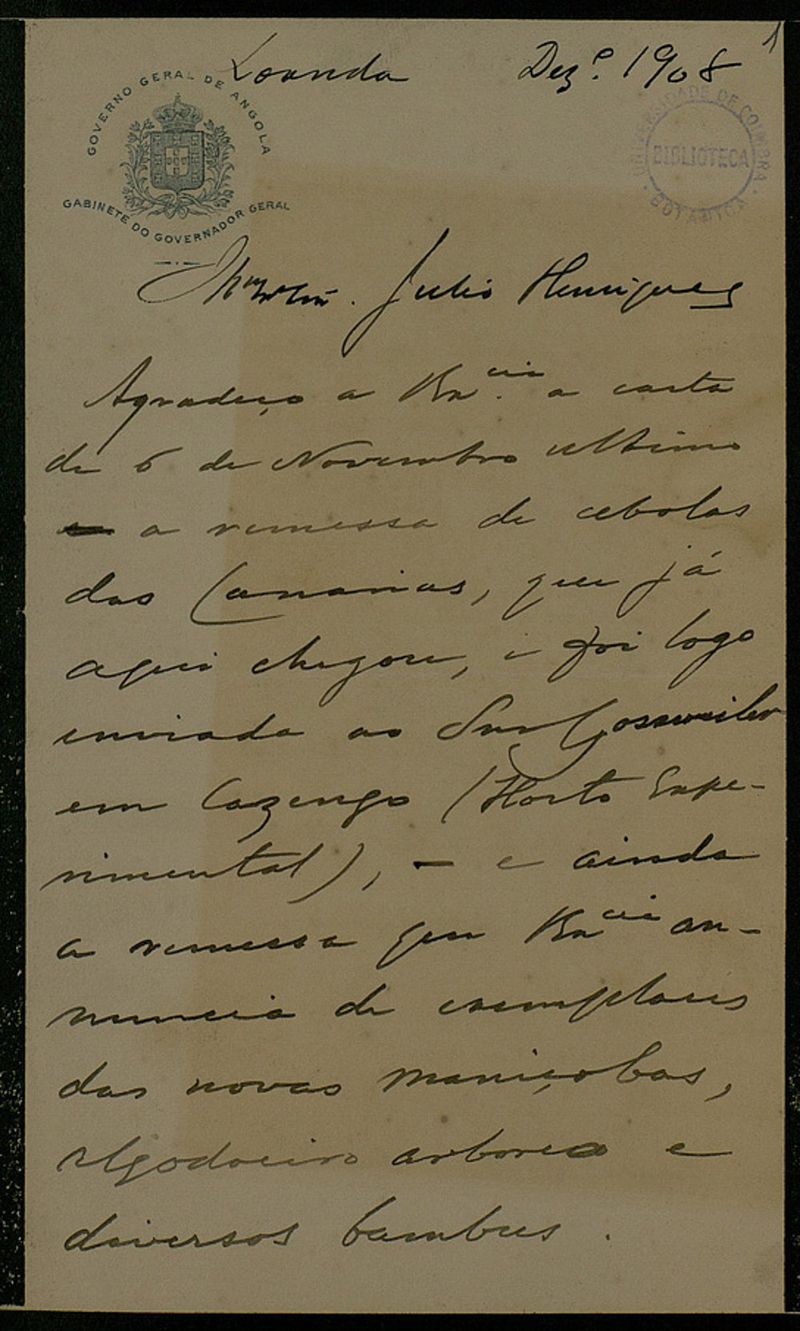 1
Loanda Dez.º 1908
GOVERNO GERAL DE ANGOLA
GABINETE DO GOVERNADOR GERAL
UNIVERSIDADE DE COIMBRA
BIBLIOTECA
BOTANICA
Julio Henriques
Agradeço a Exª a carta
de 6 de Novembro ultimo
a remessa de cebolas
das Canarias, que já
aqui chegou, e foi logo
enviada ao Snr Gossweiler
em Cazengo (Horto Expe-
rimental), - e ainda
a remessa que an-
nuncia de exemplares
das novas maniçobas,
algodoeiro arboreo e
diversos bambus.